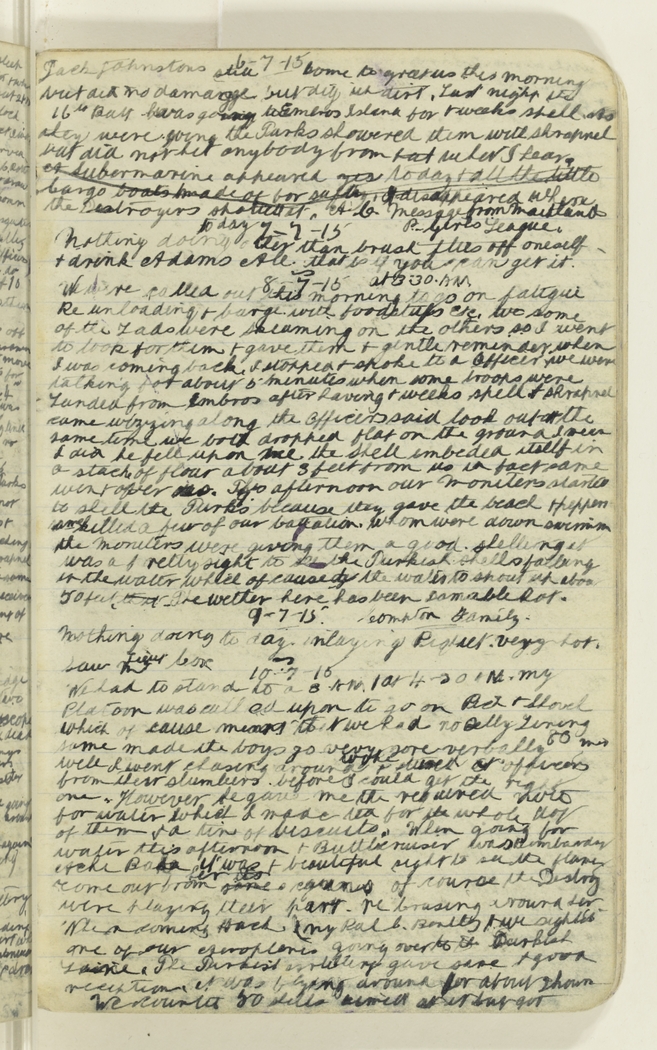 6-7-15
Jack Johnstons still come to greet us this morning
but did no damage but dig up dirt. Last night the
16th Batt was going to Embros Island for & weeks spell. As
they were going the Turks showered them with shrapnel
but did not hit anybody from what I hear,
A submarine appeared yes to day & all the little
barges boats made of for safety, it disappeared when
the Destroyers shot at it. Message from Maitland
P. Girls League.
7-7-15
Nothing doing to day other than brush flies off oneself
& drink Adams Ale. that is if you can get it.
8-7-15 at 3.30 AM.
We were called out this morning to go on fatigue
Re unloading & barge with foodstufs etc, we some
of the Lads were on the others so I went
to look for them & gave them & gentle reminder, when
I was coming back I stopped & spoke to a Officer, we were
talking for about 5 minutes when some troops were
Landed from Embros after having & weeks spell & Shrapnel
came whizzing along the Officers said look out at the
same time we both dropped flat on the ground I mean
I did he fell upon me the shell imbeded itself in
a stack of flour about 3 feet from us in fact some
went over us. This afternoon our Moniters started
to shell the Turks because they gave the beach & Happen
killed a few of our battalion whom were down swimmin
the Moniters were giving them a good shelling it
was a pretty sight to see the Turkish shells falling
in the water which of cause the water to shout up aboa
50 feet, The wether here has been damable hot.
9-7-15. Compton Family.
Nothing doing to day. in laying Piquet. very hot.
Saw box
10-7-15
We had to stand to a 3 AM. 1 at 4-30 AM. my
Platoon was called upon to go on Pick & Shovel
which of cause means that we had no Belly Lining
same made the boys go very sore verbally 60 men
well I went chasing around officers
from their slumbers before I could get the right
one. However he gave me the required note
for water which I made tea for the whole Lot
of them & a tin of biscuits. When going for
water this afternoon & Battle cruiser was Bombarding
Achi Baba it was & beautiful sight to see the flames
come out from guns of course the Destroy
were playing their part. re crusing around
When coming Back my Pal C. & I we sighted
one of our eroplenes going over to the Turkish
Line. The Turkish artillery gave same & good
reception, it was flying around for about 2 hours
We counted 50 shells aimed at it but got